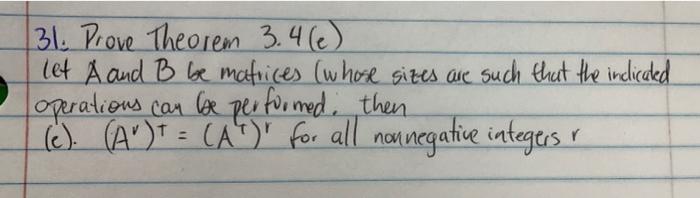 31. Prove Theorem 3.4(e)
let A and B be matrices (whose sizes are such that the indicated
operations can be performed. then
(e). (Aʳ)ᵀ = (Aᵀ)ʳ for all nonnegative integers r